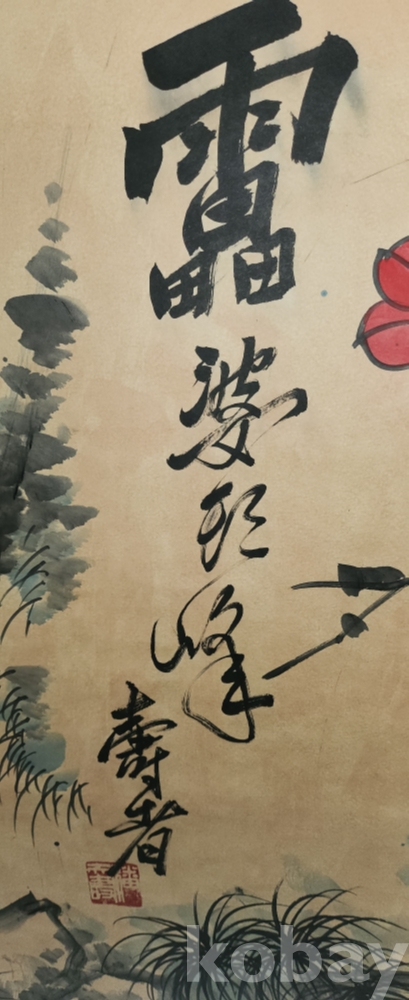 靁婆頭峰
壽者
kobay